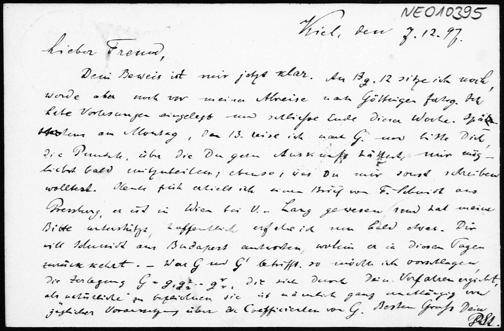 NE010395
Kiel, den 7.12.97.
Lieber Freund,
Dein Beweis ist mir jetzt klar. An Bg. 12 sitze ich noch,
werde aber noch vor meiner Abreise nach Göttingen fertig. Ich
habe Vorlesungen eingelegt und schließe Ende dieser Woche. Spä-
testens am Montag, den 13. reise ich nach G. und bitte Dich,
die Punkte, über die Du gern Auskunft hättest, mir mög-
lichst bald mitzuteilen; ebenso, was Du mir sonst schreiben
wolltest. Heute früh erhielt ich einen Brief von F. Schmidt aus
Pressburg, er ist in Wien bei V. v. Lang gewesen und hat meine
Bitte unterstützt, hoffentlich erfahre ich nun bald etwas. Dir
will Schmidt aus Budapest antworten, wohin er in diesen Tagen
zurückkehrt. – Was G und G' betrifft, so möchte ich vorschlagen
die Zerlegung G = die sich durch Dein Verfahren ergibt,
als natürliche zu bezeichnen sie ist nämlich ganz unabhängig von
jeglicher Voraussetzung über die Coefficienten von G. Besten Gruß Dein